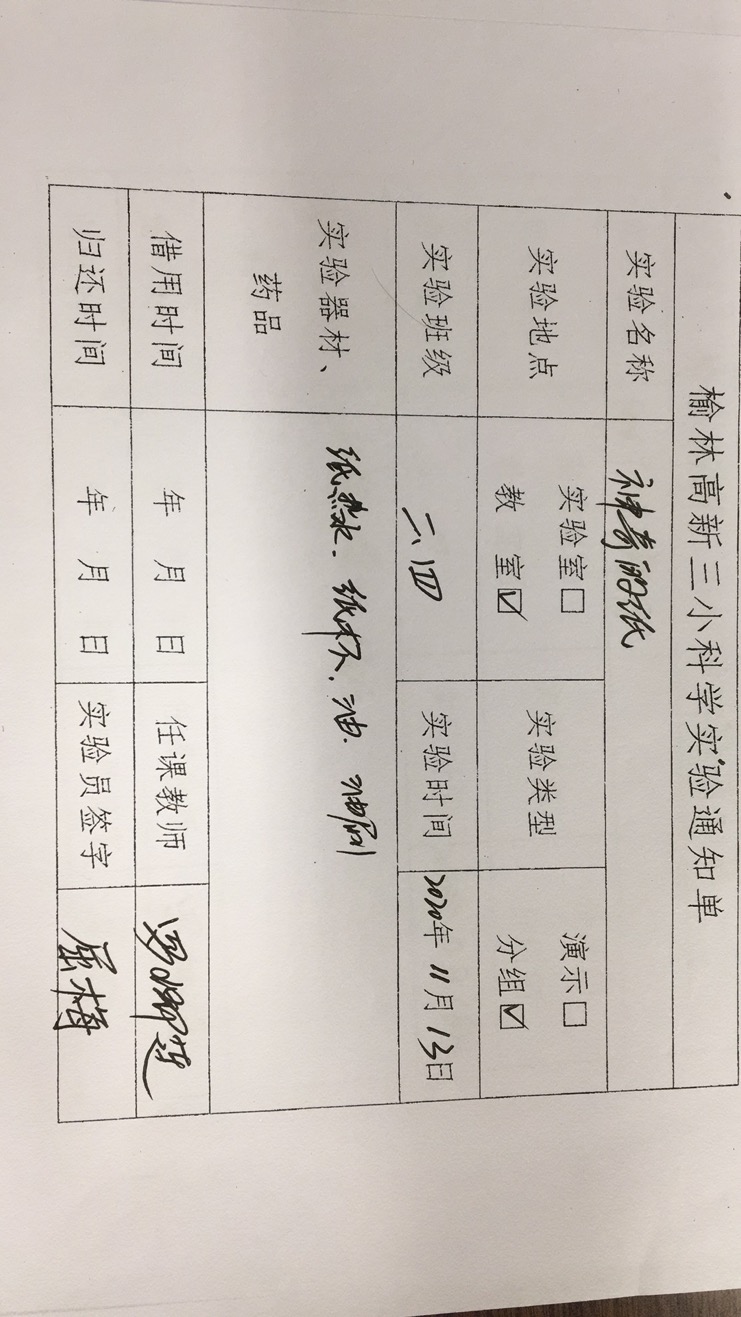 榆林高新三小科学实验通知单
实验名称 神奇的纸
实验地点 实验室□ 教 室☑ 实验类型 演示□ 分组☑
实验班级 二、四 实验时间 2020年11月13日
实验器材、药品 纸、热水、纸杯、油、油刷
借用时间 年 月 日 任课教师
归还时间 年 月 日 实验员签字 屈梅